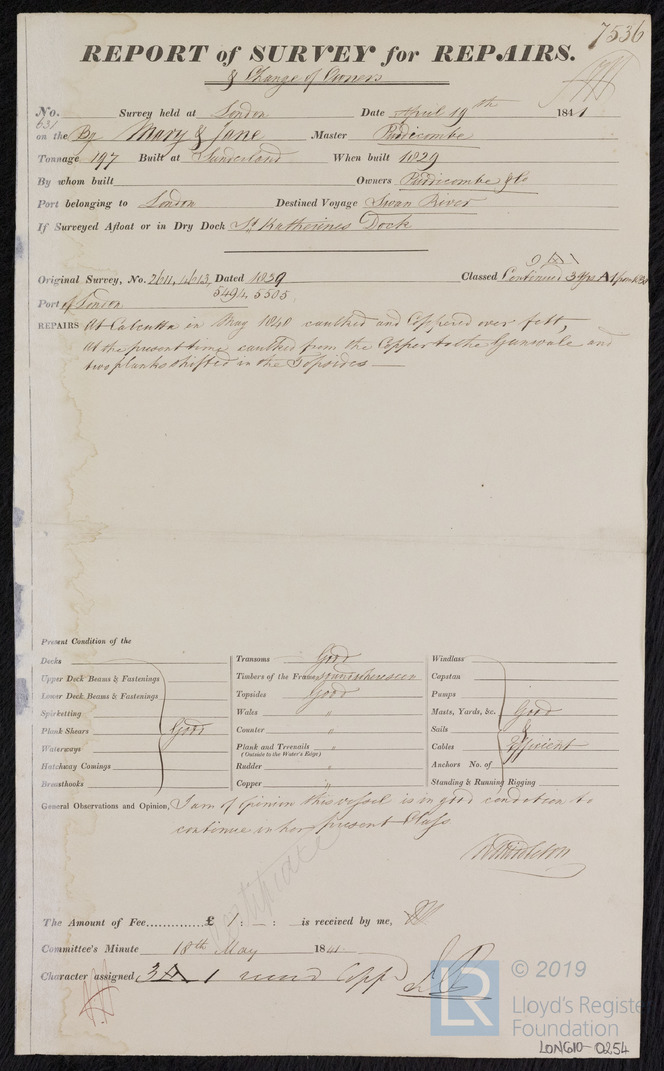 7536
REPORT of SURVEY for REPAIRS.
& Change of Owners
No. 631 Survey held at London Date April 19th 1841
on the Bg Mary & Jane Master Purdicombe
Tonnage 197 Built at Sunderland When built 1829
By whom built Owners Purdicombe & Co
Port belonging to London Destined Voyage Swan River
If Surveyed Afloat or in Dry Dock St Katherines Dock
Original Survey, No. 2611, 4613, Dated 1839 Classed Continued 3 yrs A1 from
5494. 5505
Port of London
REPAIRS At Calcutta in May 1840 caulked and Coppered over felt,
At the present time caulked from the Copper to the Gunwale and
two planks shifted in the Topsides
Present Condition of the
Decks
Upper Deck Beams & Fastenings
Lower Deck Beams & Fastenings
Spirketting
Plank Shears Good
Waterways
Hatchway Comings
Breasthooks
Transoms Good
Timbers of the Frame sound where seen
Topsides Good
Wales "
Counter "
Plank and Treenails "
(Outside to the Water's Edge)
Rudder "
Copper "
Windlass
Capstan
Pumps
Masts, Yards, &c. Good
Sails &
Cables Efficient
Anchors No. of
Standing & Running Rigging
General Observations and Opinion, I am of opinion this vessel is in good condition to
continue in her present Class
The Amount of Fee.............. £ 1 : — : is received by me,
Committee's Minute 18th May 1841
Character assigned 3 A 1 Copp
© 2019
LR Lloyd's Register
Foundation
LON610-0254